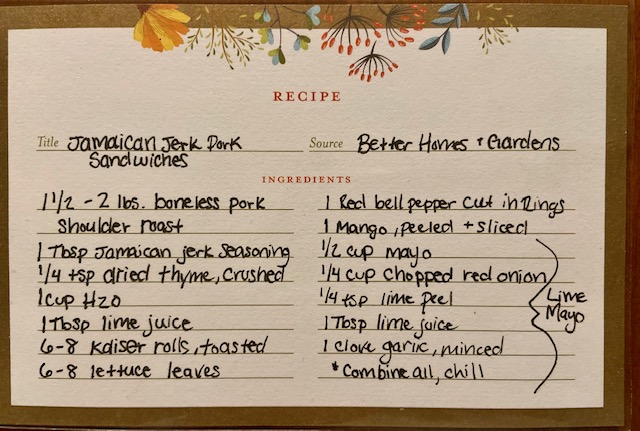 RECIPE
Title Jamaican Jerk Pork Sandwiches
Source Better Homes + Gardens
INGREDIENTS
1 1/2 - 2 lbs. boneless pork
shoulder roast
1 Tbsp Jamaican jerk seasoning
1/4 tsp dried thyme, crushed
1 cup H20
1 Tbsp lime juice
6-8 Kaiser rolls, toasted
6-8 lettuce leaves
1 Red bell pepper cut in Rings
1 Mango, peeled + sliced
1/2 cup mayo
1/4 cup chopped red onion
1/4 tsp lime peel
1 Tbsp lime juice
1 clove garlic, minced
* Combine all, chill
Lime
Mayo